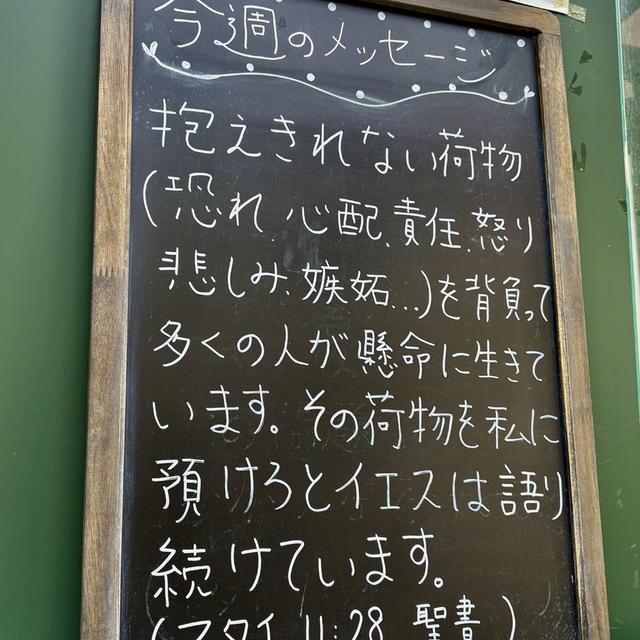 今週のメッセージ
抱えきれない荷物
(恐れ、心配、責任、怒り
悲しみ、嫉妬...)を背負って
多くの人が懸命に生きて
います。その荷物を私に
預けろとイエスは語り
続けています。
(マタイ 11:28 聖書)